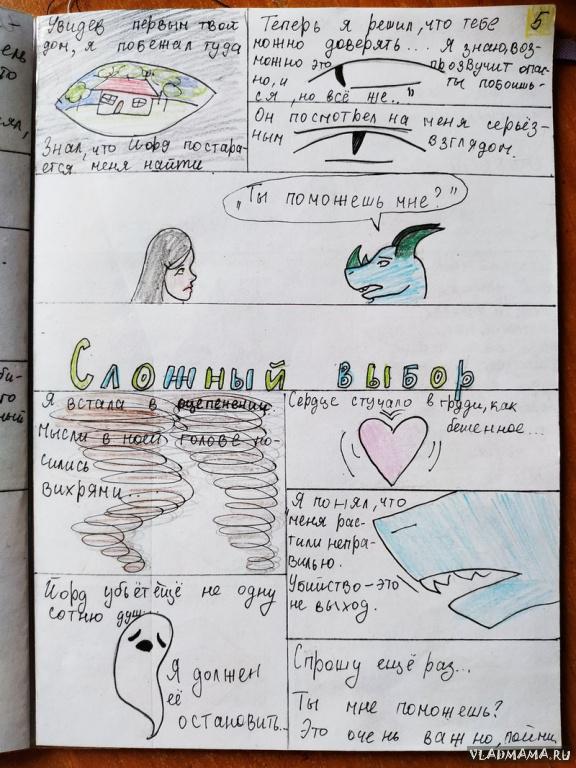 Увидев первым твой
дом, я побежал туда
Знал, что Йорд постара-
ется меня найти
5
Теперь я решил, что тебе
можно доверять... Я знаю, воз-
можно это прозвучит опас-
но, и ты побоишь-
ся, но всё же.."
Он посмотрел на меня серьёз-
ным взглядом.
„Ты поможешь мне?"
Сложный выбор
Я встала в оцепенении
Мысли в моей голове но-
сились
вихрями...
Сердце стучало в груди, как
бешенное...
Я понял, что
меня рас-
тили непра-
вильно.
Убийство-это
не выход.
Йорд убьёт ещё не одну
сотню душ...
Я должен
её
остановить...
Спрошу ещё раз...
Ты мне поможешь?
Это очень важно, пойми
VLADMAMA.RU